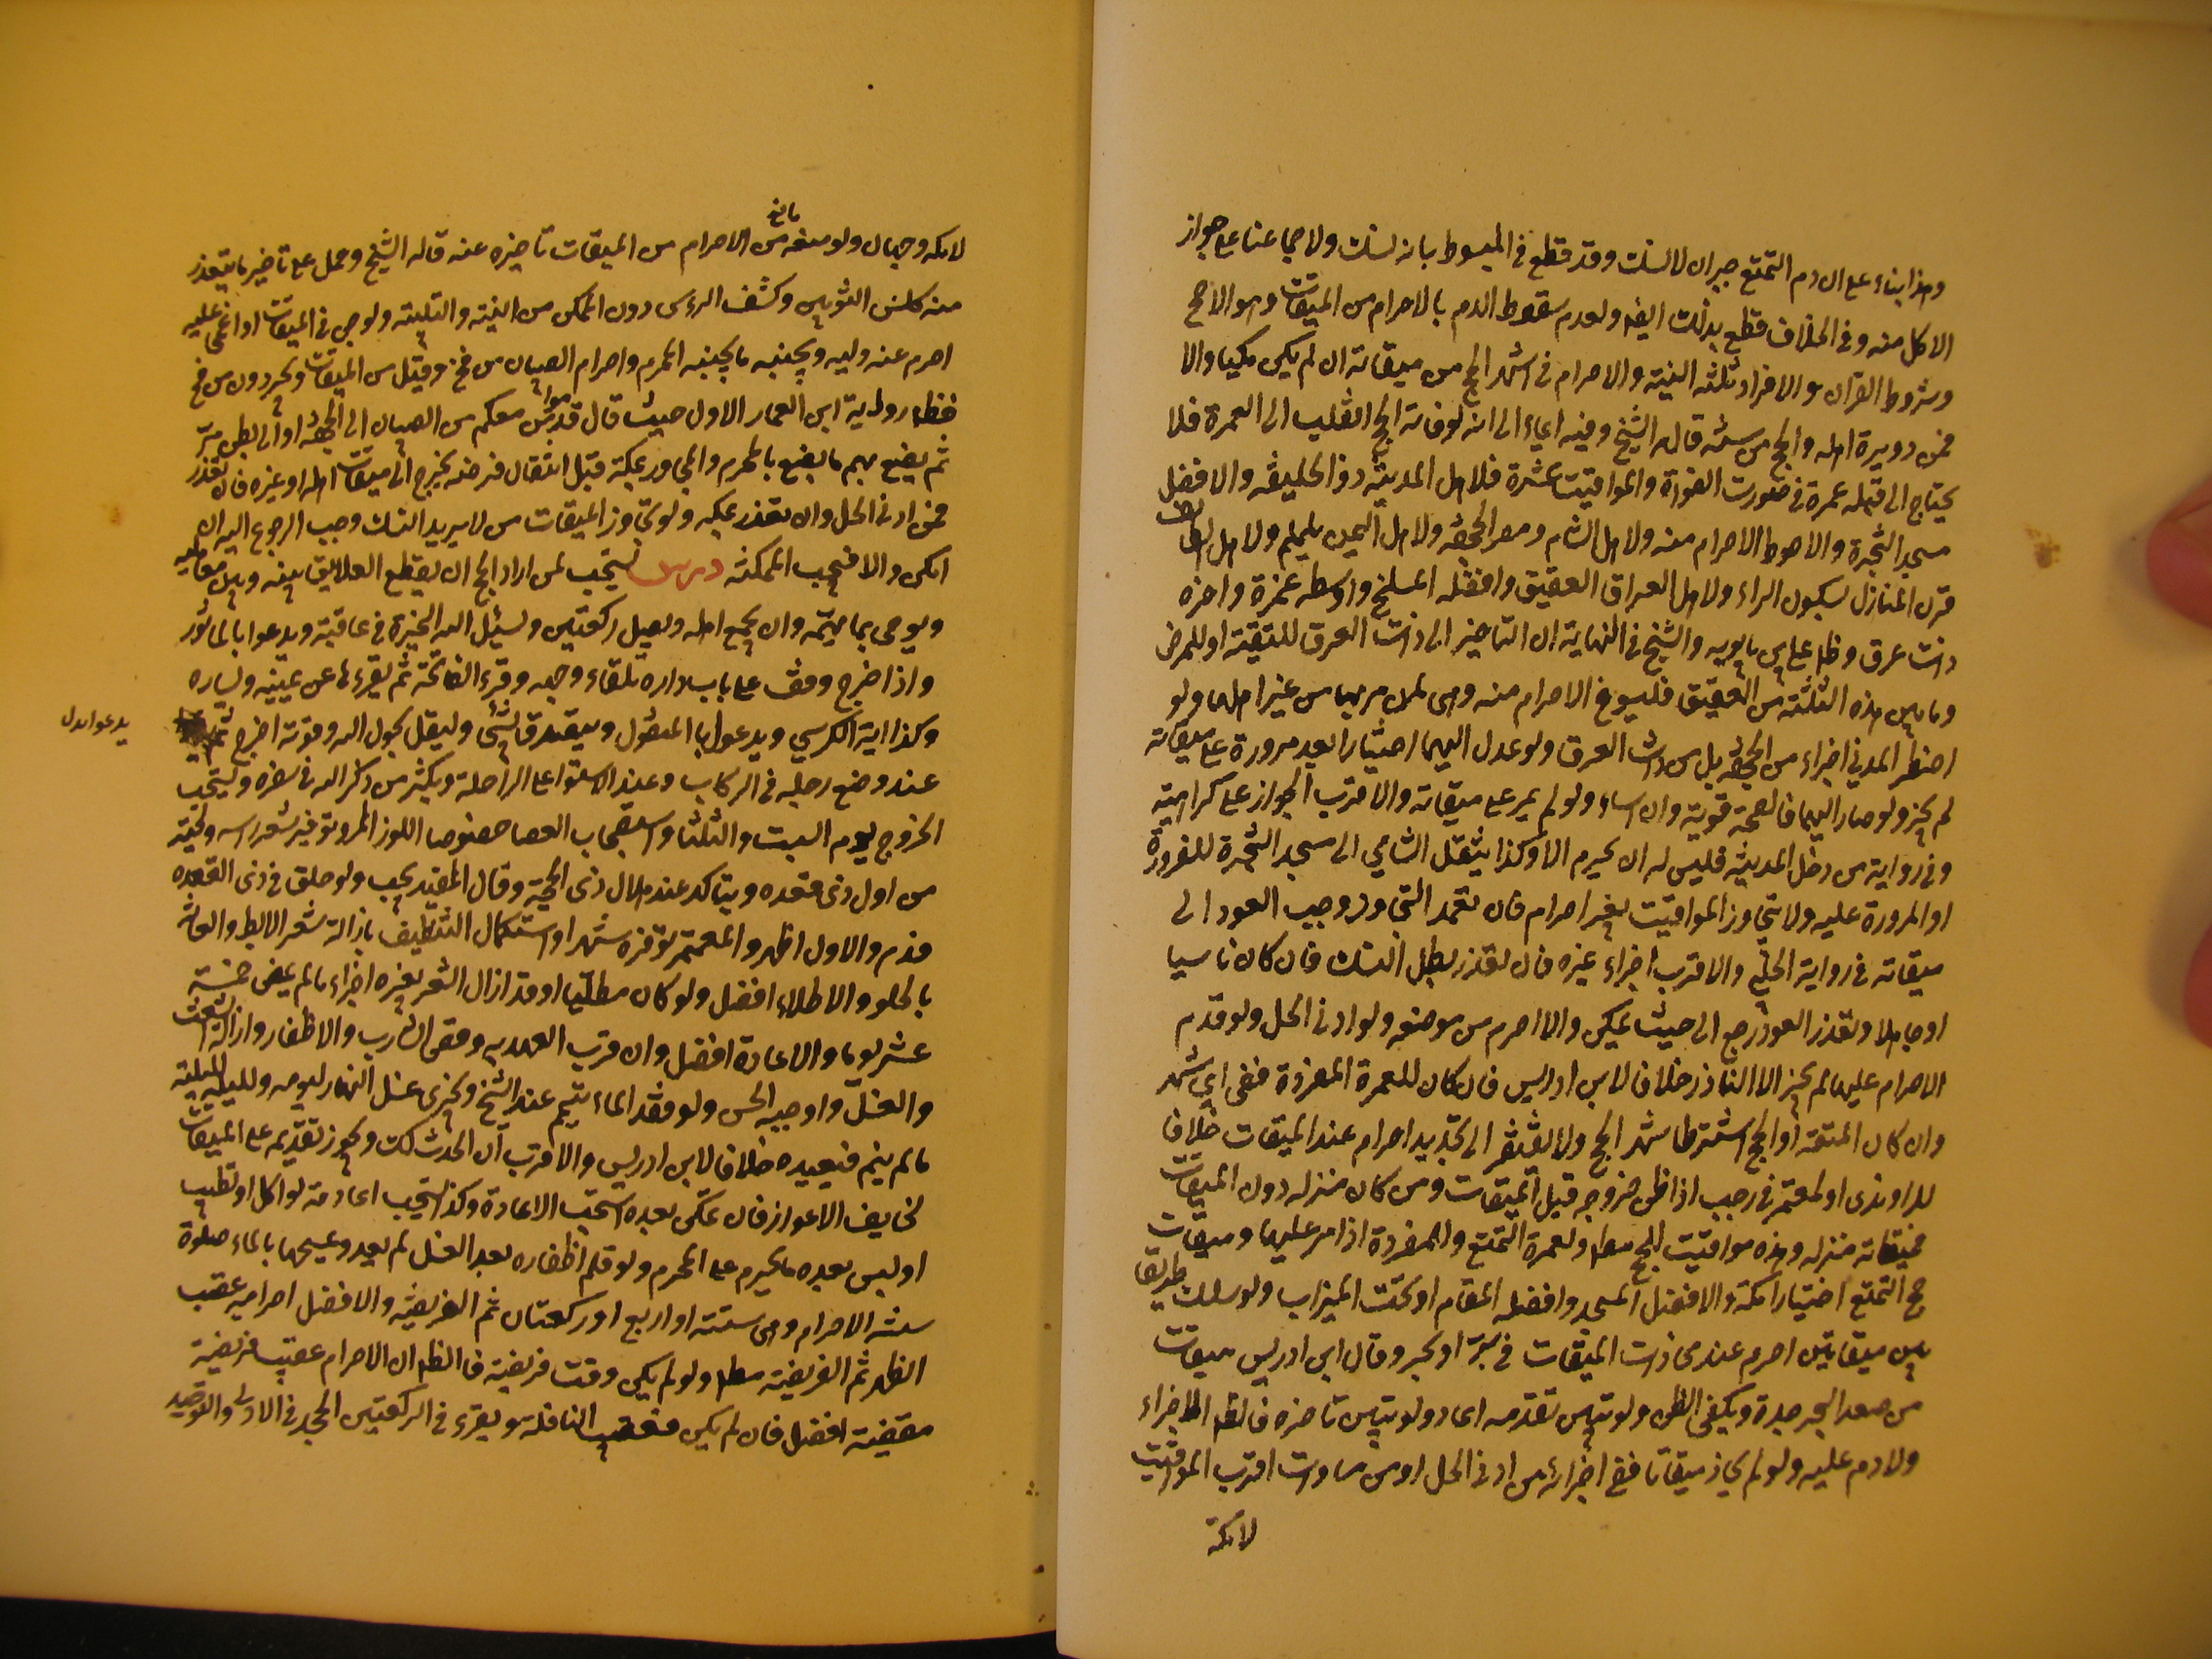 وهذا بناء على ان دم التمتع جبران لا نسك وقد قطع في المبسوط بانه نسك ولاجماعنا على جواز
الاكل منه وفي الخلاف قطع بذلك ايضا ولعدم سقوط الدم بالاحرام من الميقات وهو الاصح
وشروط القران والافراد ثلثة النية والاحرام في اشهر الحج من ميقاته ان لم يكن مكيا والا
فمن دويرة اهله والحج من سنته قاله الشيخ وفيه ايماء الى انه لو فاته الحج انقلب الى العمرة فلا
يحتاج الى قبله عمرة في صورت الفوات والمواقيت عشرة فلاهل المدينة ذو الحليفة والافضل
مسجد الشجرة والاحوط الاحرام منه ولاهل الشام ومصر الجحفة ولاهل اليمن يلملم ولاهل الطائف
قرن المنازل بسكون الراء ولاهل العراق العقيق وافضله المسلخ واوسطه غمرة واخره
ذات عرق وظ علي بن بابويه والشيخ في النهاية ان التاخير الى ذات العرق للتقية او للمرض
وما بين هذه الثلثة من العقيق فيسوغ الاحرام منه وهي لمن مر بها من غير اهلها ولو
اضطر المدني اجزاء من الجحفة بل من ذات العرق ولو عدل اليهما اختيارا بعد مروره على ميقاته
لم يجز ولو صار اليهما فالصحة قوية وان اساء ولو لم يمر على ميقاته والاقرب الجواز على كراهية
وفي رواية من دخل المدينة فليس له ان يحرم الا وكذا ينتقل الشامي الى مسجد الشجرة للضرورة
او المرورة عليه ولا تتجاوز المواقيت بغير احرام فان تعمد التجاوز وجب العود الى
ميقاته في رواية الحلبي والاقرب اجزاء غيره فان تعذر بطل النسك فان كان ناسيا
او جاهلا وتعذر العود رجع الى حيث يمكن والا احرم من موضعه ولو ادنى الحل ولو قدم
الاحرام عليها لم يجز الا الناذر خلافا لابن ادريس فان كان للعمرة المفردة ففي اي شهر
وان كان المتعة او الحج اشترط اشهر الحج ولا يفتقر الى تجديد احرام عند الميقات خلافا
للراوندي او لمعتمر في رجب اذا ظن خروجه قبل الميقات ومن كان منزله دون الميقات
فميقاته منزله وهذه مواقيت الحج مطلقا ولعمرة التمتع وللمفردة اذا مر عليها وميقات
حج التمتع اختيارا مكة والافضل المسجد وافضله المقام او تحت الميزاب ولو سلك طريقا
بين ميقاتين احرم عند محاذات الميقات في بر او بحر وقال ابن ادريس ميقات
من صعد البحر جدة ويكفي الظن ولو تبين تقدمه اعاد ولو تبين تاخره فالظ الاجزاء
ولا دم عليه ولو لم يحاذ ميقاتا ففي اجزائه من ادنى الحل او من مساوات اقرب المواقيت
لامكة
لامكة وجهان ولو منعه مانع من الاحرام من الميقات تاخيره عنه قاله الشيخ وحمل على تاخير ما يتعذر
منه كلبس الثوبين وكشف الراس دون الممكن من النية والتلبية ولو جن في الميقات او اغمي عليه
احرم عنه وليه ويجنبه ما يجتنبه المحرم واحرام الصبيان من فخ وقيل من الميقات ويجردون من فخ
فظ رواية ابن العمار الاول حيث قال قدموا من معكم من الصبيان الى الجحفة او الى بطن مر
ثم يصنع بهم ما يصنع بالمحرم والمجاور بمكة قبل انتقال فرضه يخرج الى ميقات اهله او غيره فان تعذر
فمن ادنى الحل وان تعذر بمكة ولو تجاوز الميقات من لا يريد النسك وجب الرجوع اليه ان
امكن والا فبحسب الممكنة درس يستحب لمن اراد الحج ان يقطع العلايق بينه وبين معامليه
ويوصي بما يهمه وان يجمع اهله ويصلي ركعتين ويسئل الله الخيرة في عاقبته ويدعوا بالماثور
واذا خرج وقف على باب داره تلقاء وجهه وقرء الفاتحة ثم يقرءها عن يمينه ويساره
وكذا اية الكرسي ويدعوا بالمنقول ويتصدق بشئ وليقل بحول الله وقوته اخرج ثم
يدعوا بدل
عند وضع رجله في الركاب وعند الاستواء على الراحلة ويكثر من ذكر الله في سفره ويستحب
الخروج يوم السبت والثلثا واستصحاب العصا خصوصا اللوز المر وتوفير شعر راسه ولحيته
من اول ذي قعده ويتاكد عند هلال ذي الحجة وقال المفيد يجب ولو حلق في ذي القعده
فدم والاول اظهر والمعتمر توفره شهرا واستكمال التنظيف بازالة شعر الابط والعانة
بالحلق والاطلاء افضل ولو كان مطليا او قد ازال الشعر بغيره اجزاء ما لم يمض خمسة
عشر يوما والاعادة افضل وان قرب العهد به وقص الشارب والاظفار وازالة الشعث
والغسل واوجبه الحسن ولو فقد الماء تيمم عند الشيخ ويجزي غسل النهار ليومه والليل لليلته
ما لم ينم فيعيده خلافا لابن ادريس والاقرب ان الحدث كك ويجوز تقديمه على الميقات
لخايف الاعواز فان تمكن بعده استحب الاعادة وكذا يستحب اعادته لو اكل او تطيب
او لبس بعده ما يحرم على المحرم ولو قلم اظفاره بعد الغسل لم يعد ويمسحها بالماء صلوة
سنة الاحرام وهي ستة او اربع او ركعتان ثم الفريضة والافضل احرامه عقيب
الظهر ثم الفريضة مطلقا ولو لم يكن وقت فريضة فالظ ان الاحرام عقيب فريضة
مقضية افضل فان لم يكن فعقيب النافلة ويقرء في الركعتين الحمد في الاولى والتوحيد